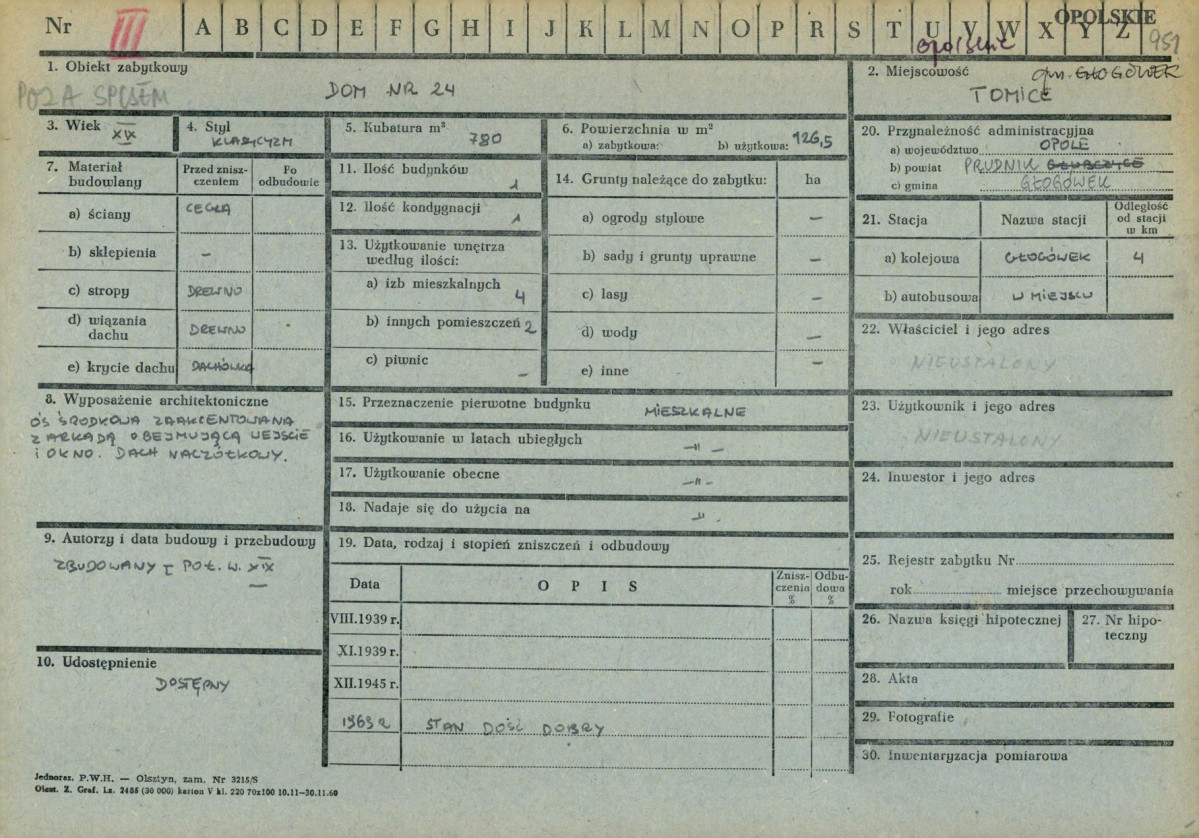 Nr III A B C D E F G H I J K L M N O P R S T U V W X Y Z
OPOLSKIE
opolskie
951
1. Obiekt zabytkowy
POZA SPISEM
DOM NR 24
2. Miejscowość
gm. GŁOGÓWEK
TOMICE
3. Wiek
XIX
4. Styl
KLASYCYZM
5. Kubatura m³
780
6. Powierzchnia w m²
a) zabytkowa: b) użytkowa: 126,5
7. Materiał budowlany
Przed zniszczeniem
Po odbudowie
a) ściany CEGŁA
b) sklepienia –
c) stropy DREWNO
d) wiązania dachu DREWNO
e) krycie dachu DACHÓWKA
8. Wyposażenie architektoniczne
OŚ ŚRODKOWA ZAAKCENTOWANA
Z ARKADĄ OBEJMUJĄCĄ WEJŚCIE
I OKNO. DACH NACZÓŁKOWY.
9. Autorzy i data budowy i przebudowy
ZBUDOWANY I POŁ. W. XIX
10. Udostępnienie
DOSTĘPNY
11. Ilość budynków
1
12. Ilość kondygnacji
1
13. Użytkowanie wnętrza
według ilości:
a) izb mieszkalnych 4
b) innych pomieszczeń 2
c) piwnic –
14. Grunty należące do zabytku: ha
a) ogrody stylowe –
b) sady i grunty uprawne –
c) lasy –
d) wody –
e) inne –
15. Przeznaczenie pierwotne budynku MIESZKALNE
16. Użytkowanie w latach ubiegłych –"–
17. Użytkowanie obecne –"–
18. Nadaje się do użycia na –"–
19. Data, rodzaj i stopień zniszczeń i odbudowy
Data OPIS Zniszczenia % Odbudowa %
VIII.1939 r.
XI.1939 r.
XII.1945 r.
1963 R STAN DOŚĆ DOBRY
20. Przynależność administracyjna
a) województwo OPOLE
b) powiat PRUDNIK GŁUBCZYCE
c) gmina GŁOGÓWEK
21. Stacja Nazwa stacji Odległość od stacji w km
a) kolejowa GŁOGÓWEK 4
b) autobusowa W MIEJSCU
22. Właściciel i jego adres
NIEUSTALONY
23. Użytkownik i jego adres
NIEUSTALONY
24. Inwestor i jego adres
25. Rejestr zabytku Nr
rok miejsce przechowywania
26. Nazwa księgi hipotecznej
27. Nr hipoteczny
28. Akta
29. Fotografie
30. Inwentaryzacja pomiarowa
Jednoraz. P.W.H. — Olsztyn, zam. Nr 3215/S
Olszt. Z. Graf. Lz. 2485 (30 000) karton V kl. 220 70x100 10.11—30.11.60